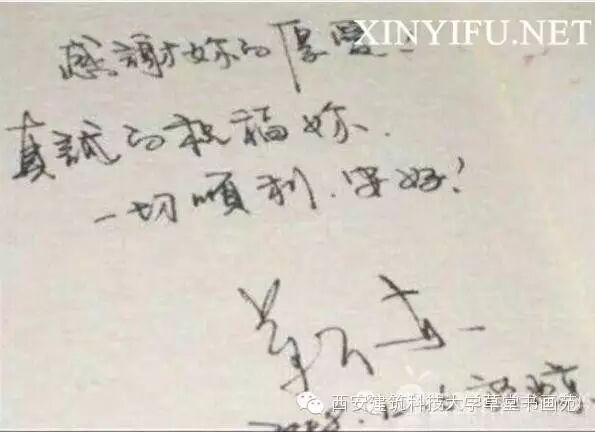 XINYIFU.NET
感謝妳的厚愛.
真誠的祝福妳.
一切順利.安好!
西安建筑科技大学草堂书画苑